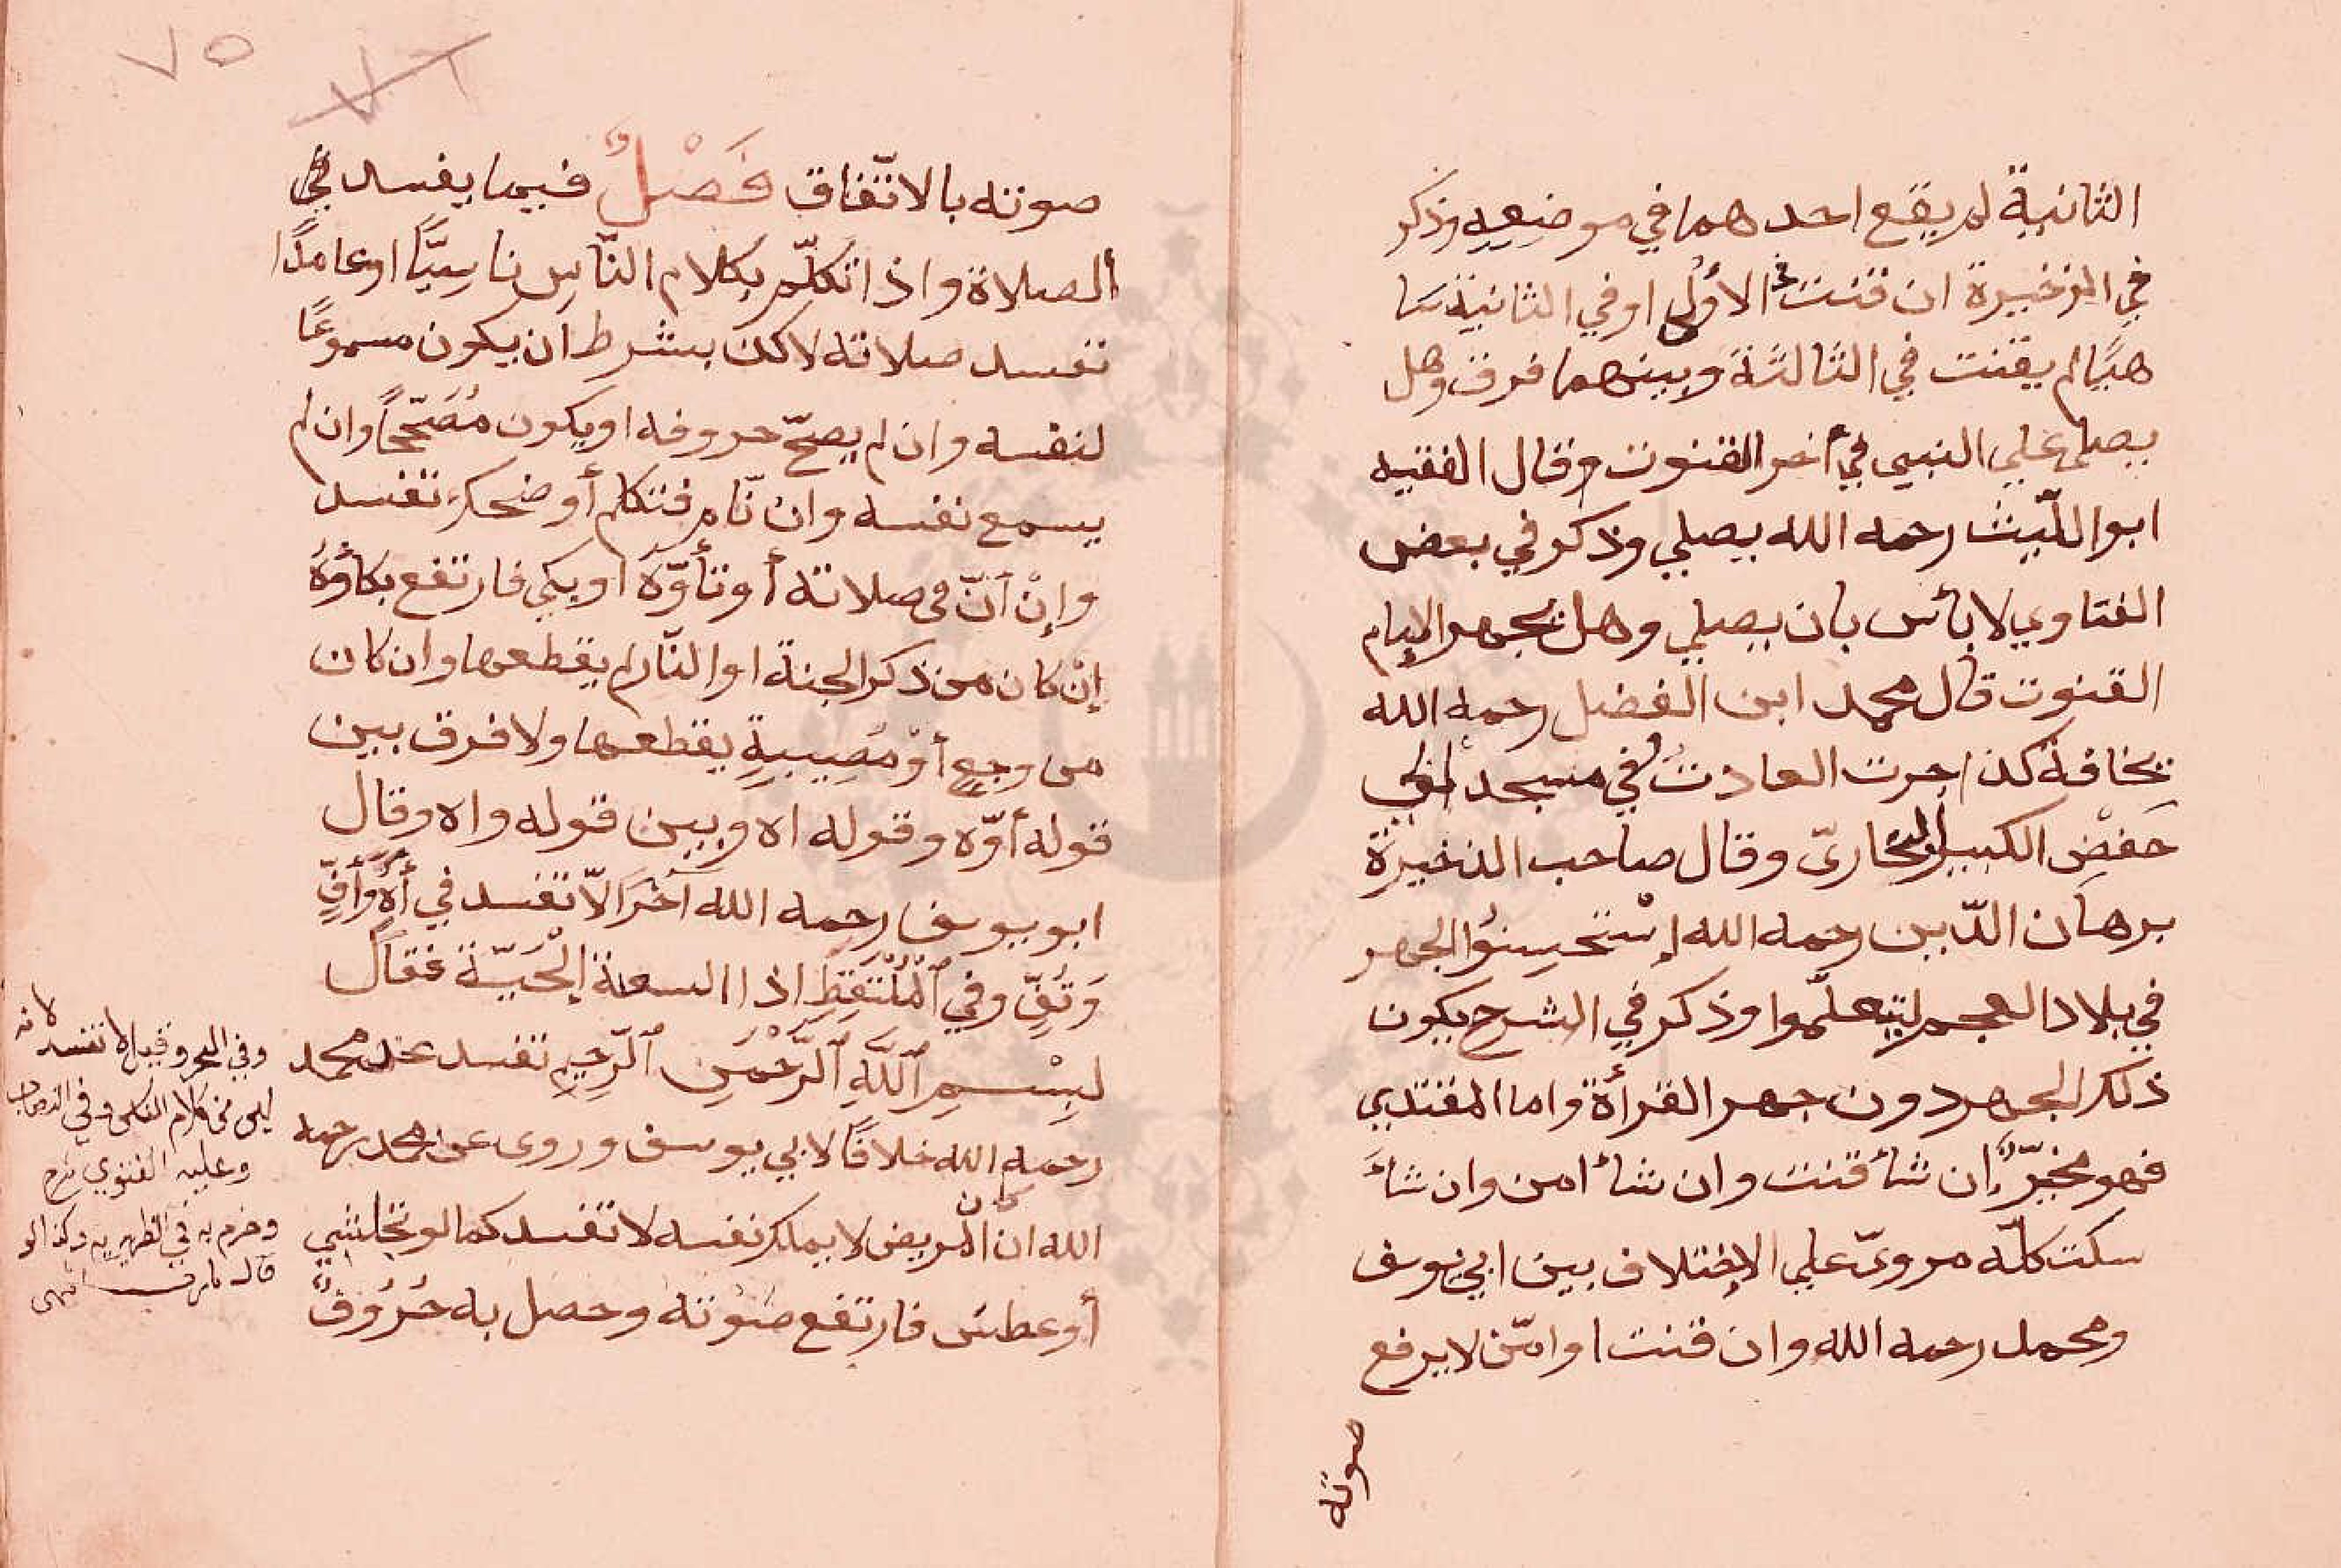 الثانية لم يقع احدهما في موضعه وذكر
في الذخيرة ان قنت في الأولى او في الثانية سا
هيًا لم يقنت في الثالثة وبينهما فرق وهل
يصلى على النبي في أخر القنوت وقال الفقيه
ابوا اللّيث رحمه الله يصلي وذكر في بعض
الفتاوي لا بأس بان يصلي وهل يجهر الإمام
القنوت قال محمد ابن الفضل رحمه الله
يخافة كذا جرت العادت في مسجد ابي
حَفْضِ الكبير البخاريّ وقال صاحب الذخيرة
برهان الدّين رحمه الله إستحسنوُا الجهر
في بلاد العجم ليتعلّموا وذكر في الشرح يكون
ذلك الجهر دون جهر القرأة واما المقتدي
فهو مخيّرٌ إن شأ قنت وان شأ امن وان شأ
سكت كلّه مرويّ علي الإختلاف بين ابي يوسف
ومحمد رحمه الله وان قنت او امّن لا يرفع
صوته
٧٥
٧٦
صوته بالاتّفاق فَصْلٌ فيما يفسد في
ألصلاة واذا تكلّم بكلام النّاس ناسِيًّا او عامدًا
تفسد صلاته لاكن بشرط ان يكون مسموعًا
لنفسه وان لم يصحّ حروفه او يكون مُصَحّحًا وان لم
يسمع نفسه وان نّام فتكلم أو ضحك تفسد
وإنْ أنّ فى صلاته أو تأوّهَ او بكي فارتفع بكاؤُهُ
إنْ كان من ذكر الجنة او النّار لم يقطعها وان كان
من وجع أوْ مُصِيبةٍ يقطعها ولا فرق بين
قوله أوّه وقوله اه وبين قوله واه وقال
ابو يوسف رحمه الله آخرًا لا تفسد في أهٍ وأفٍّ
وَتُفٍّ وفي ٱلْمُلْتَقِطِ اذا السعة الْحَيّة فقال
بِسْمِ ٱللَّهِ ٱلرَّحْمَنِ ٱلرَّحِيمِ تفسد عند محمد
رحمه الله خلافًا لابي يوسف وروى عن محمد رحمه
الله ان كان المريض لا يملك نفسه لا تفسد كما لو تجشي
أو عطس فارتفع صَوْته وحصل به حُرُوفٌ
وفي البحر وقيل لا تفسد لانه
ليس من كلام الناس وفي النصاب
وعليه الفتوي
وجزم به في الظهيرية وكذا لو
قال يارب انتهى